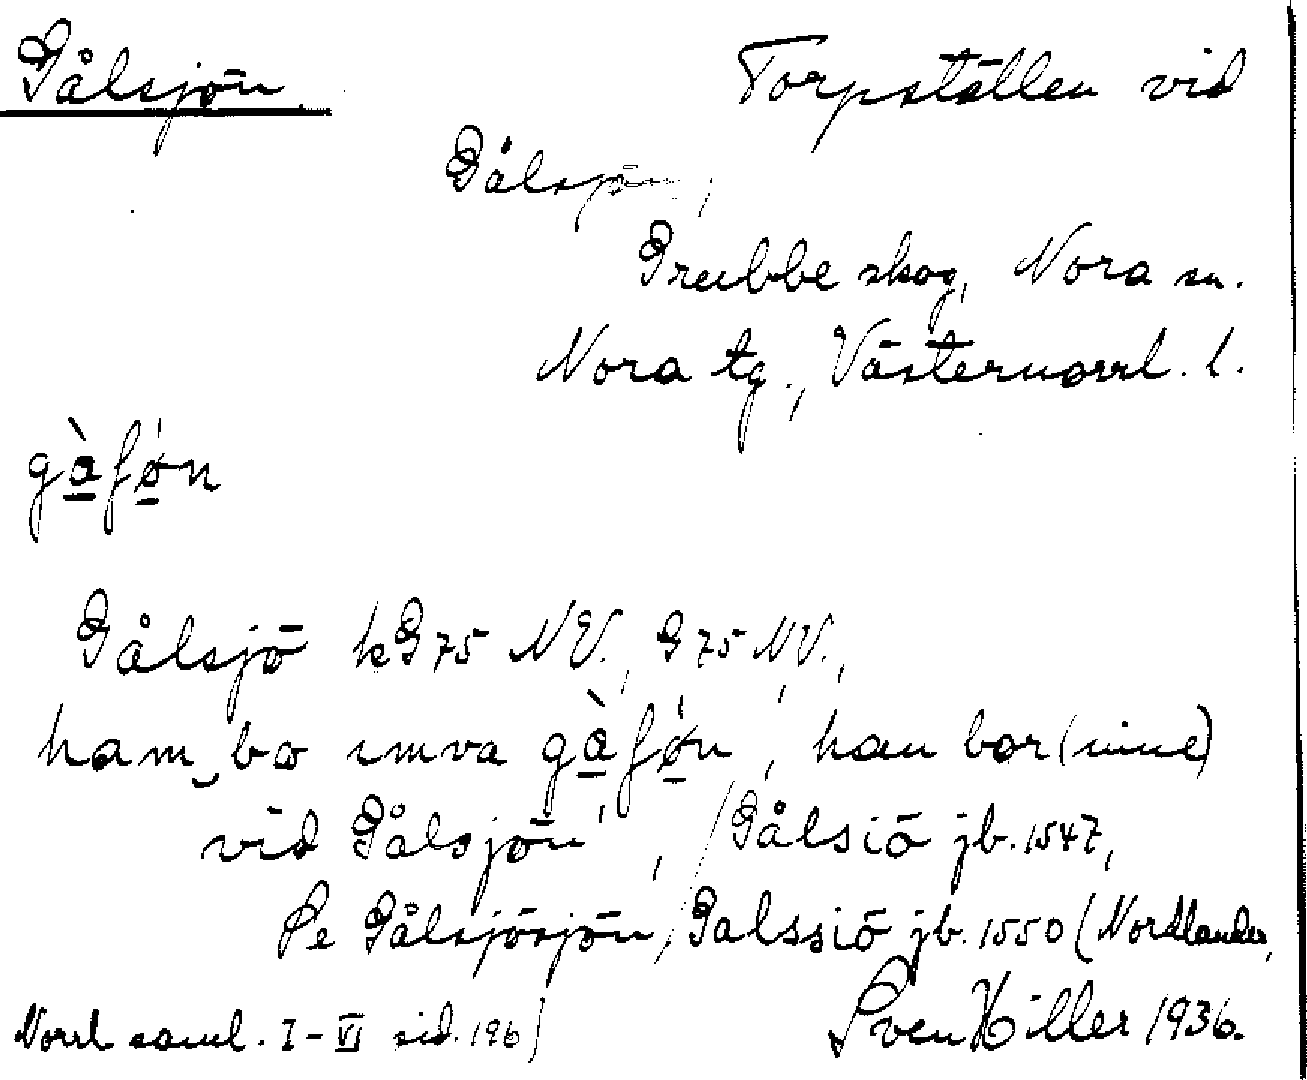 Gålsjön
Torpställen vid
Gålsjön,
Grubbe skog, Nora sn.
Nora tg., Västernorrl. l.
gàʃøn
Gålsjö kG75 NV., G75 NV.,
ham bo imva gàʃøn, han bor (inne)
vid Gålsjön', / Gålsiö jb. 1547,
Se Gålsjösjön, Galssiö jb. 1550 (Nordlander,
Norrl saml. I-VI sid. 196)
Sven Hiller 1936.